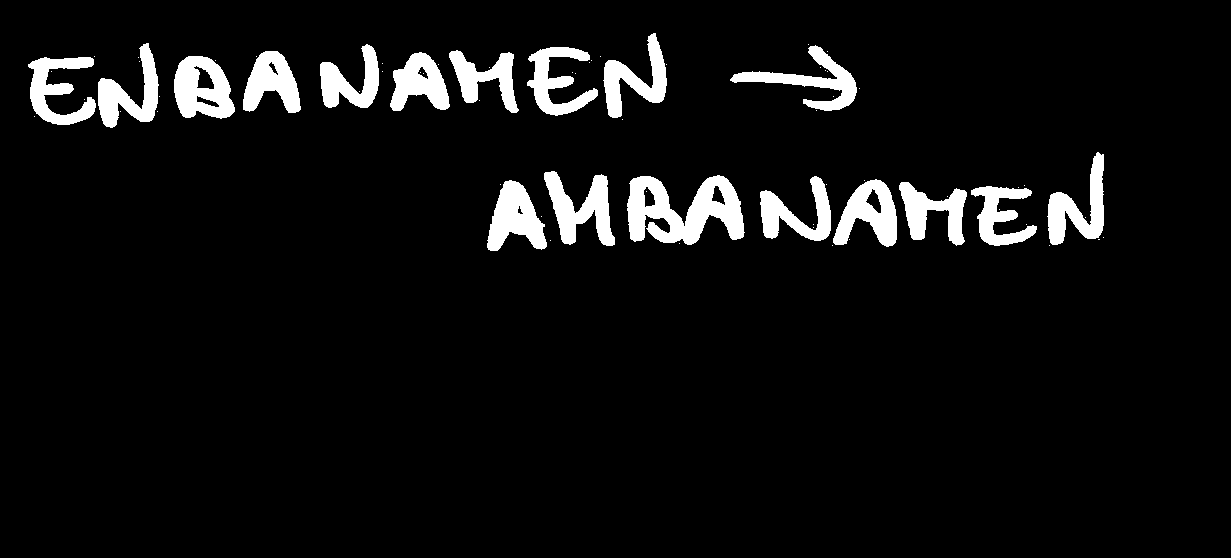 ENBANAMEN →
AMBANAMEN